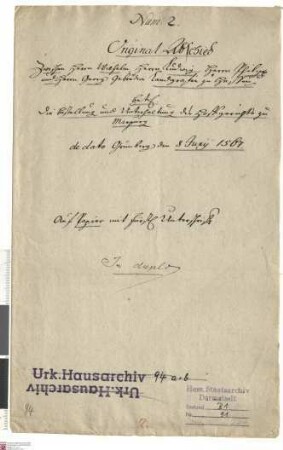 Num. 2.
Original Abschied
Zwischen Herrn Wilhelm Herrn Ludwig, Herrn Philips
und Herrn Georg Gebrüder Landgrafen zu Hessen
die Bestellung und Unterhaltung des Hoffgerichts zu
Marpurg
de dato Grünberg, den 8 Junij 1567
Auf Papier mit fürstl. Unterschrift
In duplo
Urk.Hausarchiv 94 a-b
Urk.Hausarchiv
Hess. Staatsarchiv
Darmstadt
94